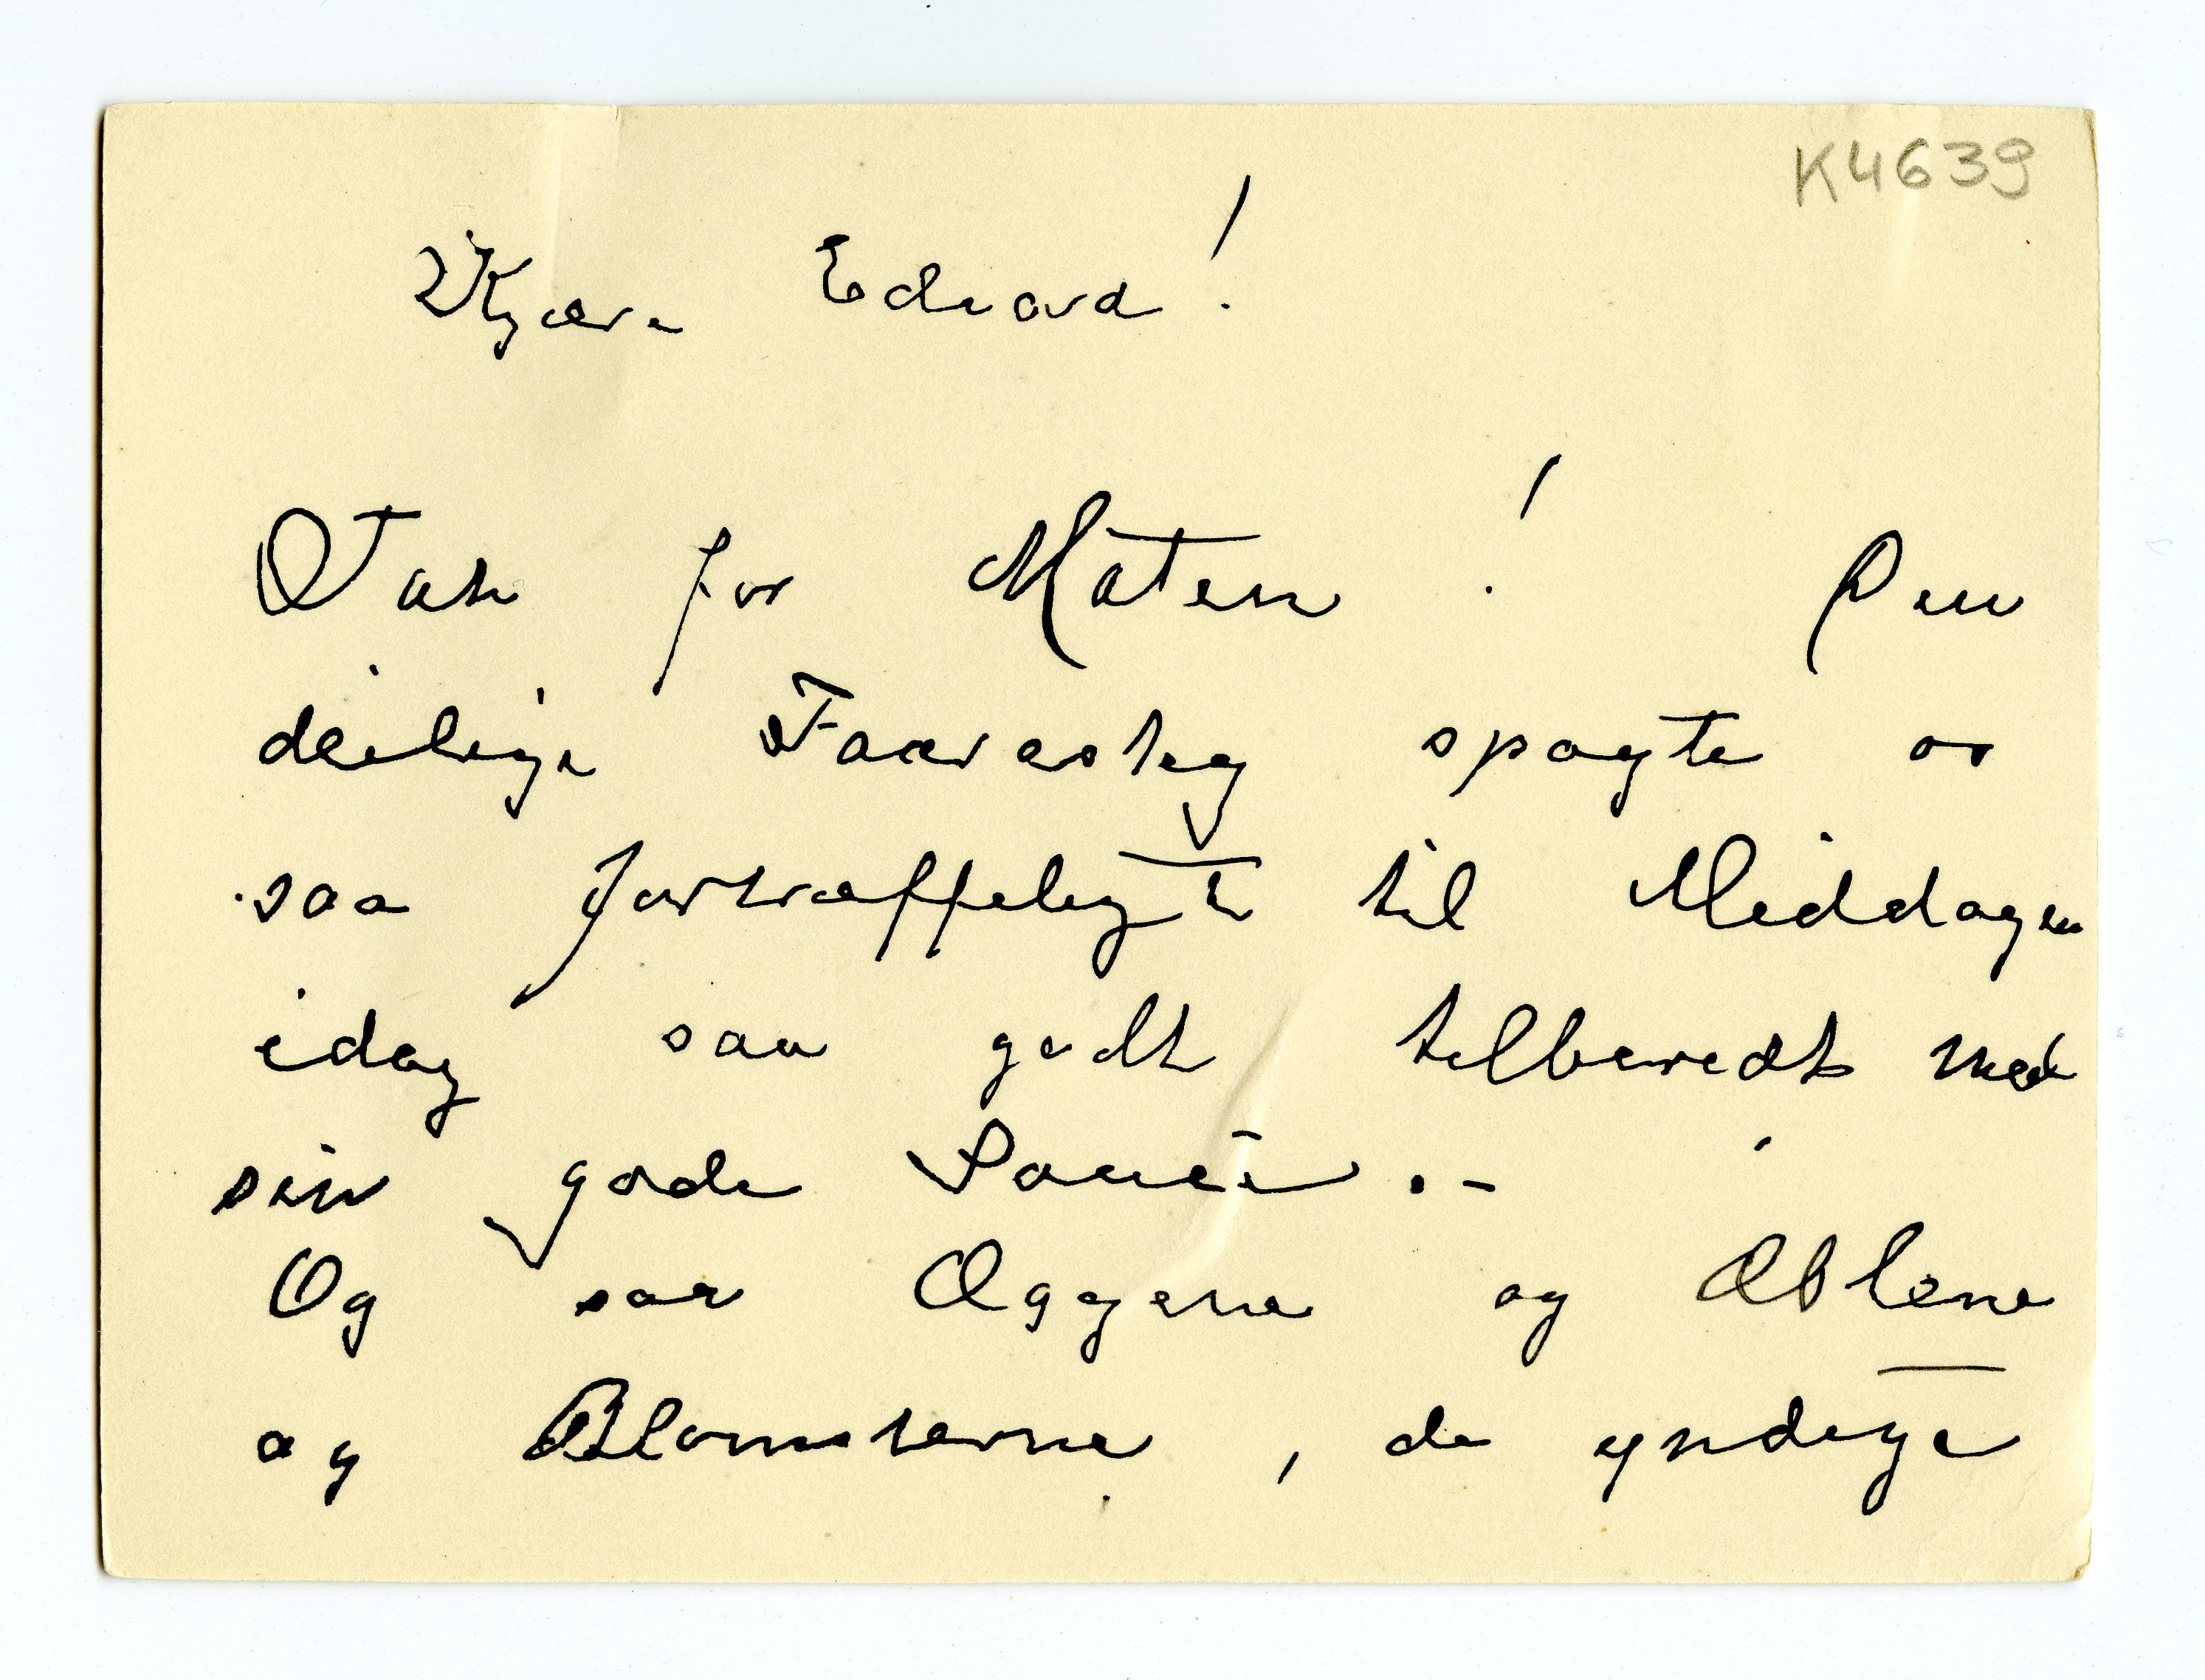 K4639
Kjære Edvard!
Tak for Maten! Den
deilige Faaresteg smagte os
saa fortræffeligt til Middagen
idag saa godt tilberedt med
sin gode Sauce.-
Og saa Æggene og Æblene
og Blomsterne, de yndige